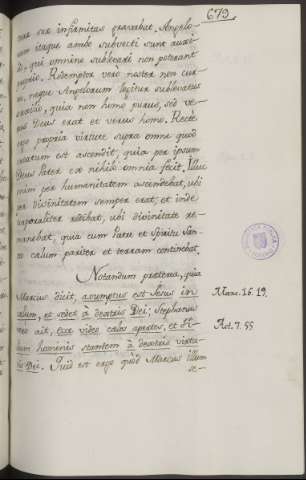 679
tura sua infirmitas gravabat. Angelo-
rum itaque ambo subvecti sunt auxi-
lio, qui omnino sublevari non poterant
proprio. Redemptor vero noster non cur-
ru, neque Angelorum legitur sublevatus
auxilio, quia non homo purus, sed ve-
rus Deus erat et verus homo. Recte
ergo propria virtute supra omne quod
creatum est ascendit, quia per ipsum
Deus Pater ex nihilo omnia fecit. Illuc
enim per humanitatem ascendebat, ubi
per divinitatem semper erat; et inde
corporaliter redibat, ubi divinitate re-
manebat, quia cum Patre et Spiritu San-
cto cælum pariter et terram continebat.
Notandum præterea, quia
Marcus dicit, assumptus est Jesus in
cælum, et sedet à dextris Dei; Stephanus
vero ait, ecce video cælos apertos, et Fi-
lium hominis stantem à dextris virtu-
tis Dei. Quid est ergo quòd Marcus illum
se-
Marc. 16. 19.
Act. 7. 55